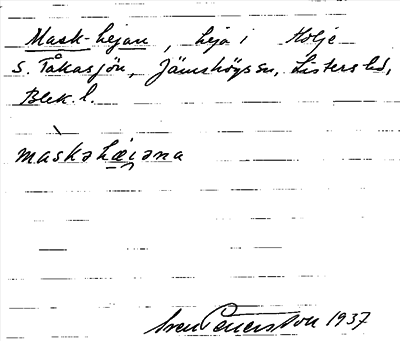 Mask-hejan, heja i Holje
S. Tåkasjön, Jämshögs sn, Listers hd,
Blek. l.
màskəhæi̯əna
Sven Petersson 1937